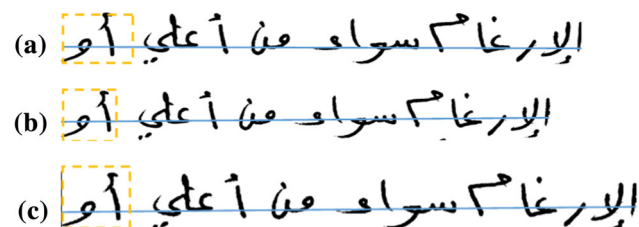 (a) الإرغام سواء من أعلي أو
(b) الإرغام سواء من أعلي أو
(c) الإرغام سواء من أعلي أو